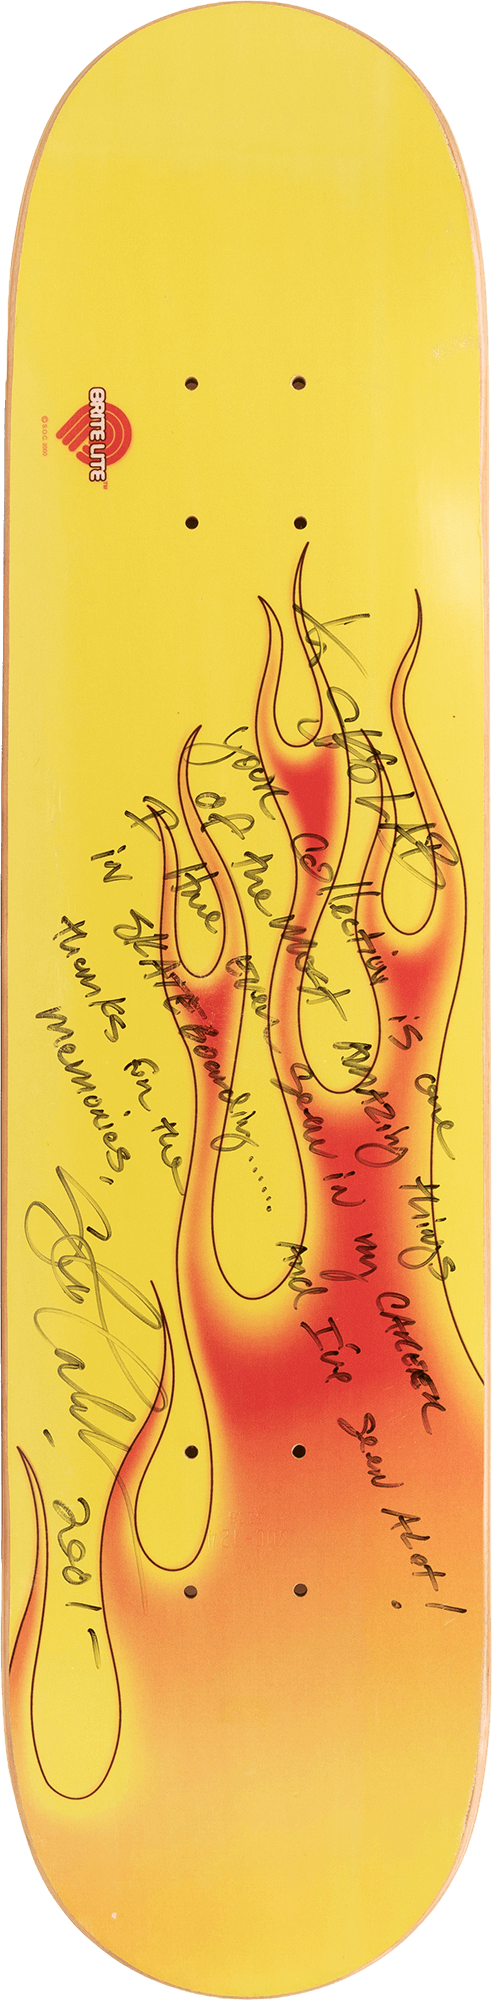 BRITE LITE™
© S.O.C. 2000
To SK8 LAB
your Collection is one
of the most Amazing things
I have Ever Seen in my CAREER
in SKATEboarding...... And I've seen Alot!
thanks for the
memories,
- 2001 -